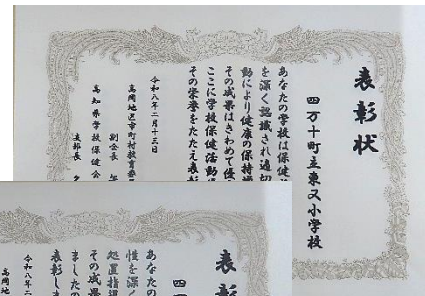 表彰状
四万十町立東又小学校
あなたの学校は保健
を深く認識され適切
動により健康の保持増
その成果はきわめて優
ここに学校保健活動
その栄誉をたたえ表彰
令和八年二月十三日
高岡地区市町村教育委
副会長
高知県学校保健会
支部長
表彰
四
あなたの
性を深く
処置指導
その成果
ましたの
表彰しま
令和八年二
高岡地